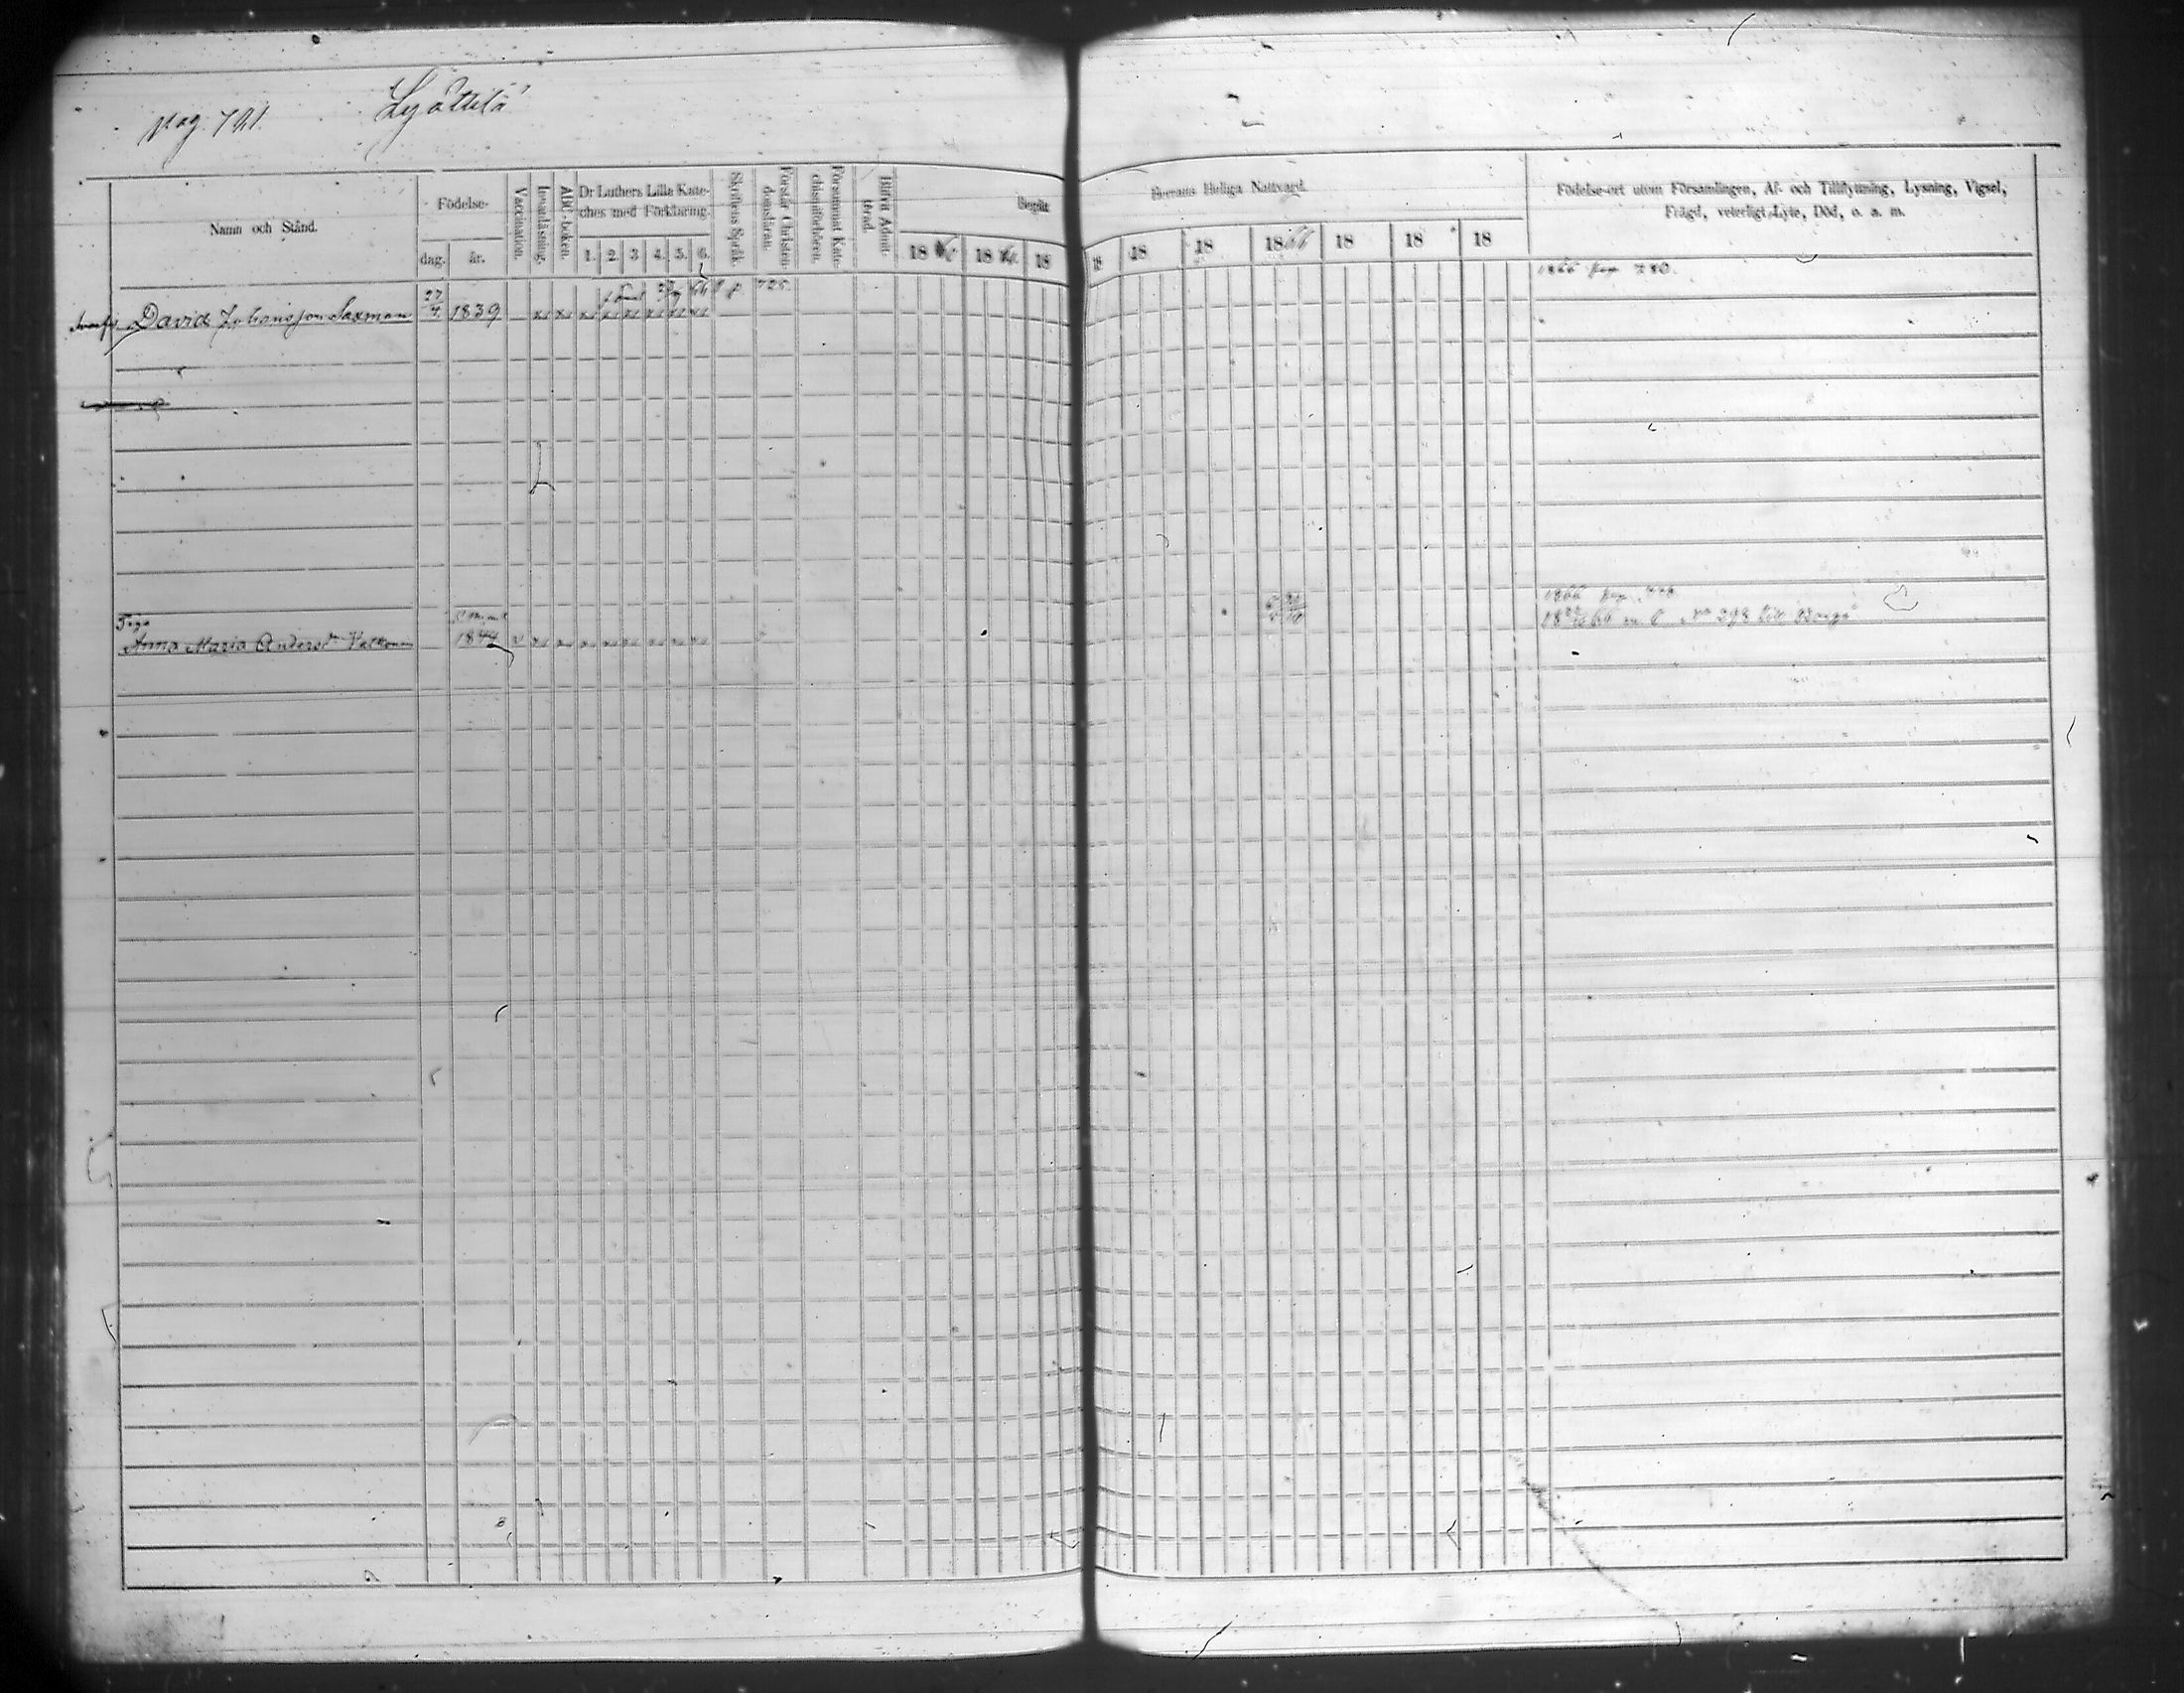 pag. 721. Lyöttilä
Namn och Stånd.
Födelse-
dag. år.
Vaccination.
Innanläsning.
ABC-boken.
Dr Luthers Lilla Kate-
ches med Förklaring.
1. 2. 3 4. 5. 6.
Skriftens Språk.
Förstår Christen-
domsläran.
Försummat Kate-
chismiförhören.
Blifvit Admit-
terad.
Begått
18 18 18
Herrans Heliga Nattvard.
18 18 18 1866 18 18 18
Födelse-ort utom Församlingen, Af- och Tillflyttning, Lysning, Vigsel,
Frägd, veterligt Lyte, Död, o. a. m.
1866 pag 780.
725
David Johansson Saxman 27/4 1839
1866 pag
Piga
Anna Maria Andersdr Valkonen 1844
66 No 292 till Borgå